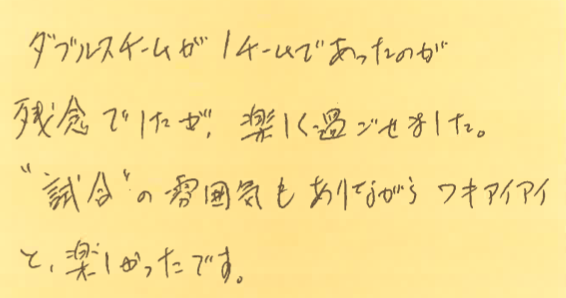 ダブルスチームが1チームであったのが
残念でしたが、楽しく過ごせました。
"試合"の雰囲気もありながらワキアイアイ
と、楽しかったです。